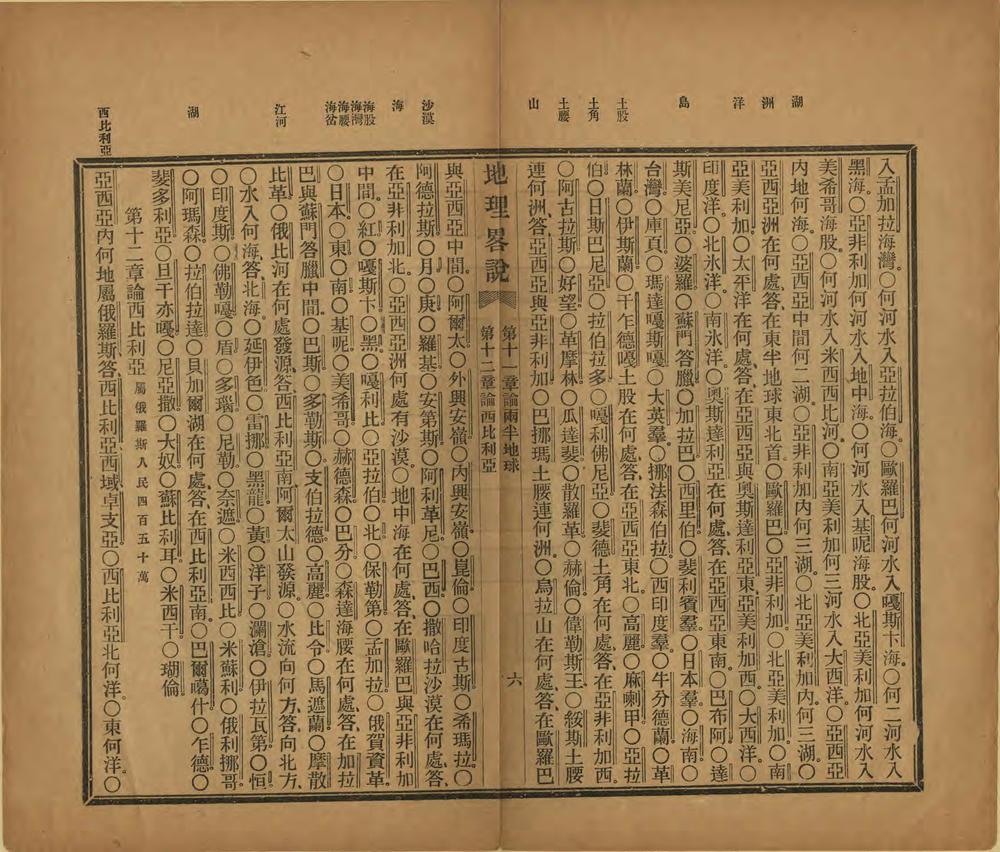 湖
洲
洋
島
土股
土角
土腰
山
入孟加拉海灣○何河水入亞拉伯海○歐羅巴何河水入嘎斯卞海○何二河水入
黑海○亞非利加何河水入地中海○何河水入基呢海股○北亞美利加何河水入
美希哥海股○何河水入米西西比河○南亞美利加何三河水入大西洋○亞西亞
內地何海○亞西亞中間何二湖○亞非利加內何三湖○北亞美利加內何三湖○
亞西亞洲在何處答在東半地球東北首○歐羅巴○亞非利加○北亞美利加○南
亞美利加○太平洋在何處答在亞西亞與奧斯達利亞東亞美利加西○大西洋○
印度洋○北氷洋○南氷洋○奧斯達利亞在何處答在亞西亞東南○巴布阿○達
斯美尼亞○婆羅○蘇門答臘○加拉巴○西里伯○斐利賓羣○日本羣○海南○
台灣○庫頁○瑪達嘎斯嘎○大英羣○挪法森伯拉○西印度羣○牛分德蘭○革
林蘭○伊斯蘭○干乍德嘎土股在何處答在亞西亞東北○高麗○麻喇甲○亞拉
伯○日斯巴尼亞○拉伯拉多○嘎利佛尼亞○斐德土角在何處答在亞非利加西
○阿古拉斯○好望○革摩林○瓜達斐○散羅革○赫倫○偉勒斯王○綏斯土腰
連何洲答亞西亞與亞非利加○巴挪瑪土腰連何洲○烏拉山在何處答在歐羅巴
地理畧說
第十一章論兩半地球
第十二章論西比利亞
六
沙漠
海
海股
海灣
海腰
海岔
江河
湖
西比利亞
與亞西亞中間○阿爾太○外興安嶺○內興安嶺○崑倫○印度古斯○希瑪拉○
阿德拉斯○月○庚○羅基○安第斯○阿利革尼○巴西○撒哈拉沙漠在何處答
在亞非利加北○亞西亞洲何處有沙漠○地中海在何處答在歐羅巴與亞非利加
中間○紅○嘎斯卞○黑○嘎利比○亞拉伯○北○保勒第○孟加拉○俄賀資革
○日本○東○南○基呢○美希哥○赫德森○巴分○森達海腰在何處答在加拉
巴與蘇門答臘中間○巴斯○多勒斯○支伯拉德○高麗○比令○馬遮蘭○摩散
比革○俄比河在何處發源答西比利亞南阿爾太山發源○水流向何方答向北方
○水入何海答北海○延伊色○雷挪○黑龍○黃○洋子○瀾滄○伊拉瓦第○恒
○印度斯○佛勒嘎○盾○多瑙○尼勒○奈遮○米西西比○米蘇利○俄利挪哥
○阿瑪森○拉伯拉達○貝加爾湖在何處答在西比利亞南○巴爾噶什○乍德○
斐多利亞○旦干亦嘎○尼亞撒○大奴○蘇比利耳○米西干○瑚倫
第十二章論西比利亞 屬俄羅斯人民四百五十萬
亞西亞內何地屬俄羅斯答西比利亞西域卓支亞○西比利亞北何洋○東何洋○